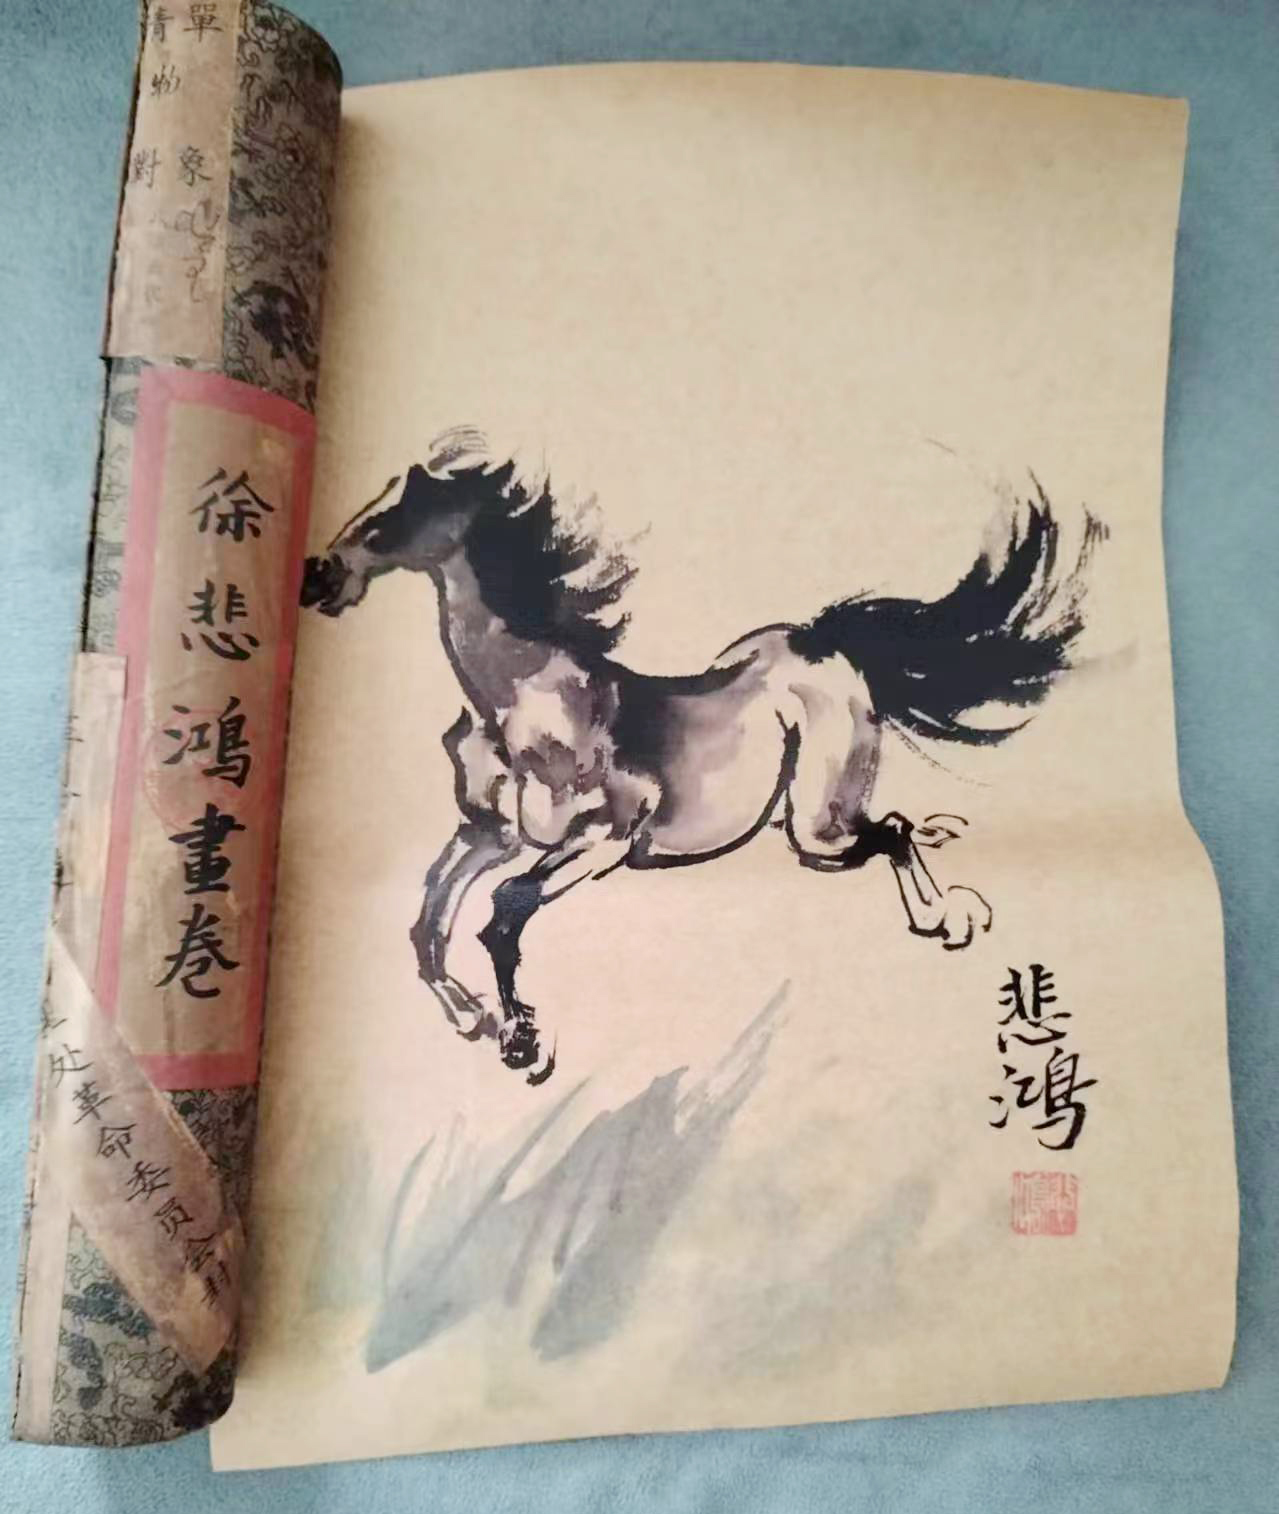 單
清
物
對 象
徐悲鴻畫卷
处革命委员会封
悲鴻
悲鴻